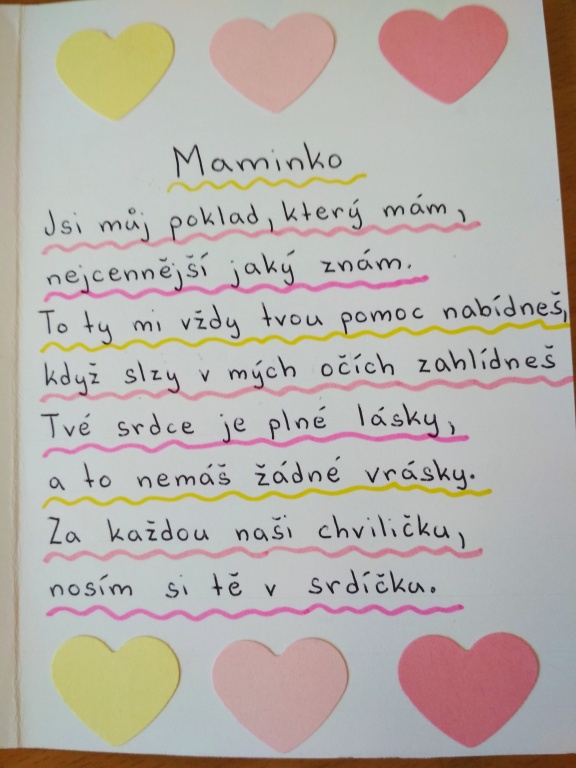 Maminko
Jsi můj poklad, který mám,
nejcennější jaký znám.
To ty mi vždy tvou pomoc nabídneš,
když slzy v mých očích zahlídneš
Tvé srdce je plné lásky,
a to nemáš žádné vrásky.
Za každou naši chviličku,
nosím si tě v srdíčku.